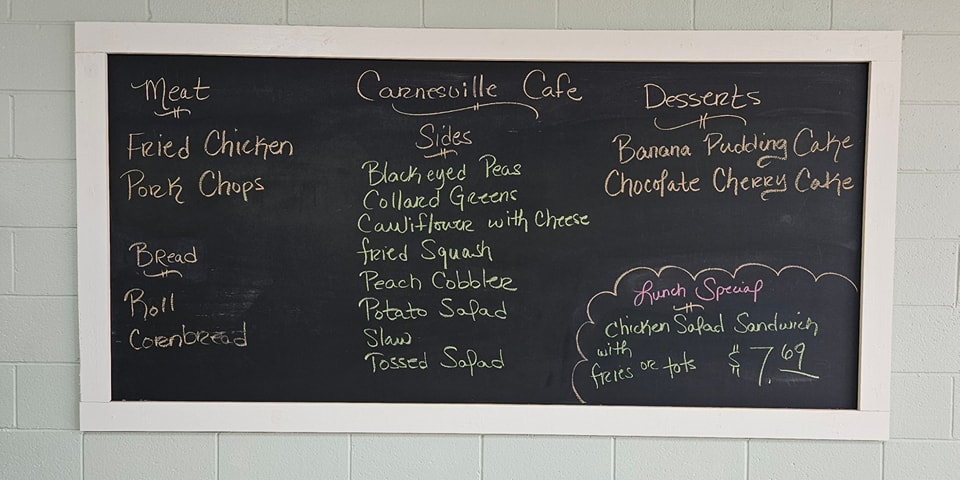 Meat
Fried Chicken
Pork Chops
Bread
Roll
Cornbread
Carnesville Cafe
Sides
Blackeyed Peas
Collard Greens
Cauliflower with Cheese
fried Squash
Peach Cobbler
Potato Salad
Slaw
Tossed Salad
Desserts
Banana Pudding Cake
Chocolate Cherry Cake
Lunch Special
Chicken Salad Sandwich
with
fries or tots $7.69